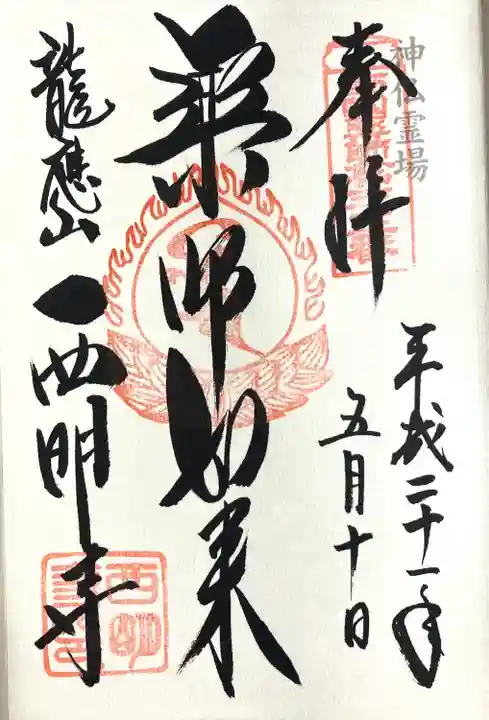 神仏霊場
奉拝
平成二十一年
五月十日
薬師如来
龍應山
西明寺
西明